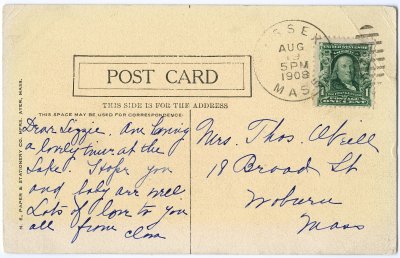 SSE
AUG
5 PM
1908
MASS
POST CARD
THIS SIDE IS FOR THE ADDRESS
THIS SPACE MAY BE USED FOR CORRESPONDENCE.
N. E. PAPER & STATIONERY CO. AYER, MASS.
ONE CENT
Dear Lizzie. Am having
a lovely time at the
Lake. Hope you
and baby are well
Lots of love to you
all from Clara
Mrs. Thos. O'Neill
18 Broad St
Woburn
Mass